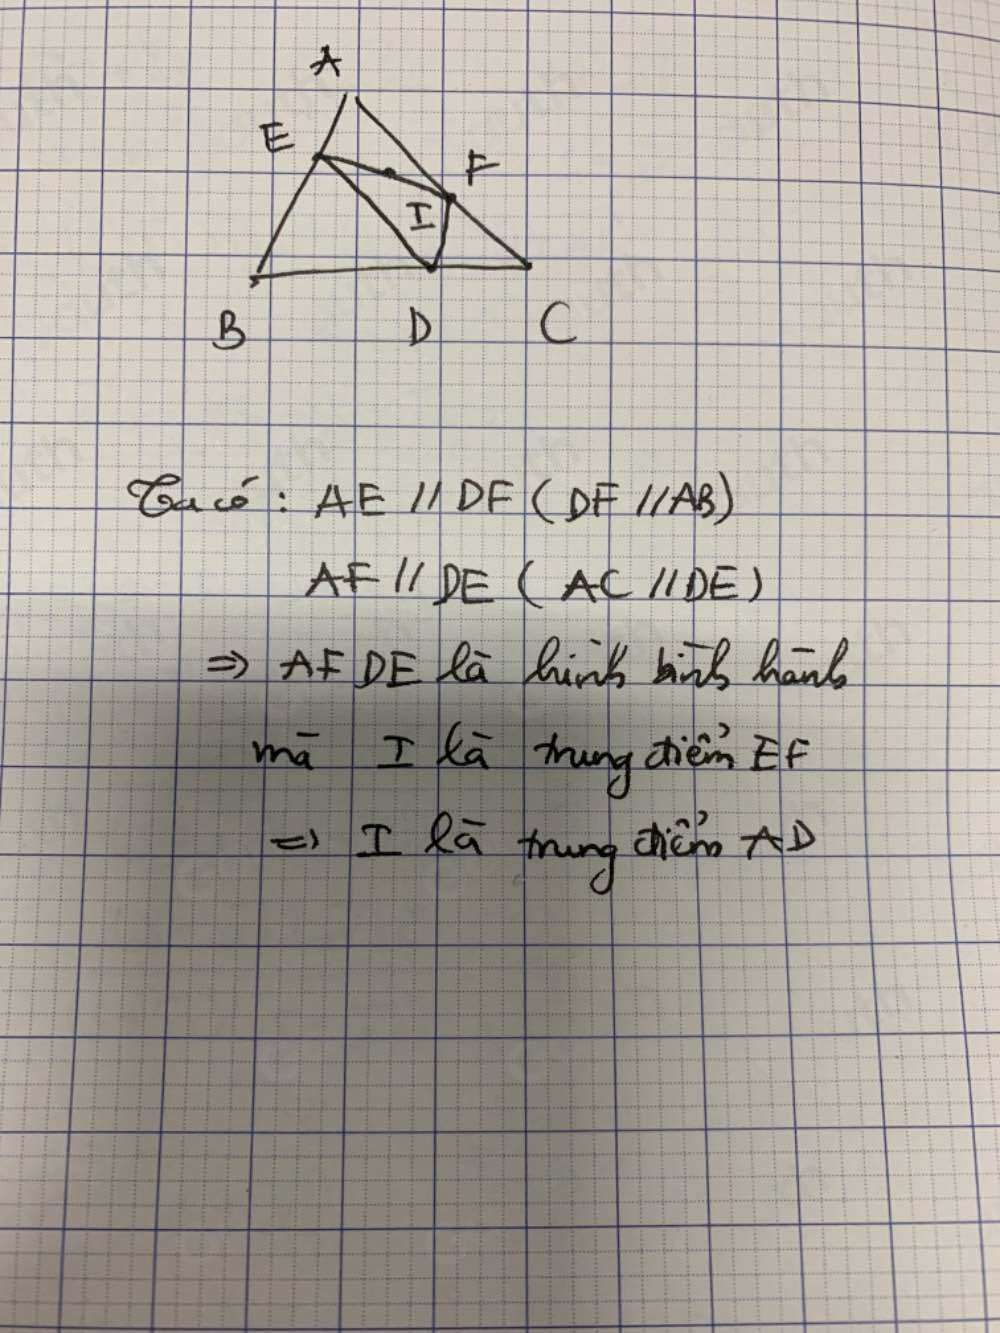 A
E
F
I
B D C
Ta có: AE // DF (DF // AB)
AF // DE (AC // DE)
=> AFDE là hình bình hành
mà I là trung điểm EF
=> I là trung điểm AD